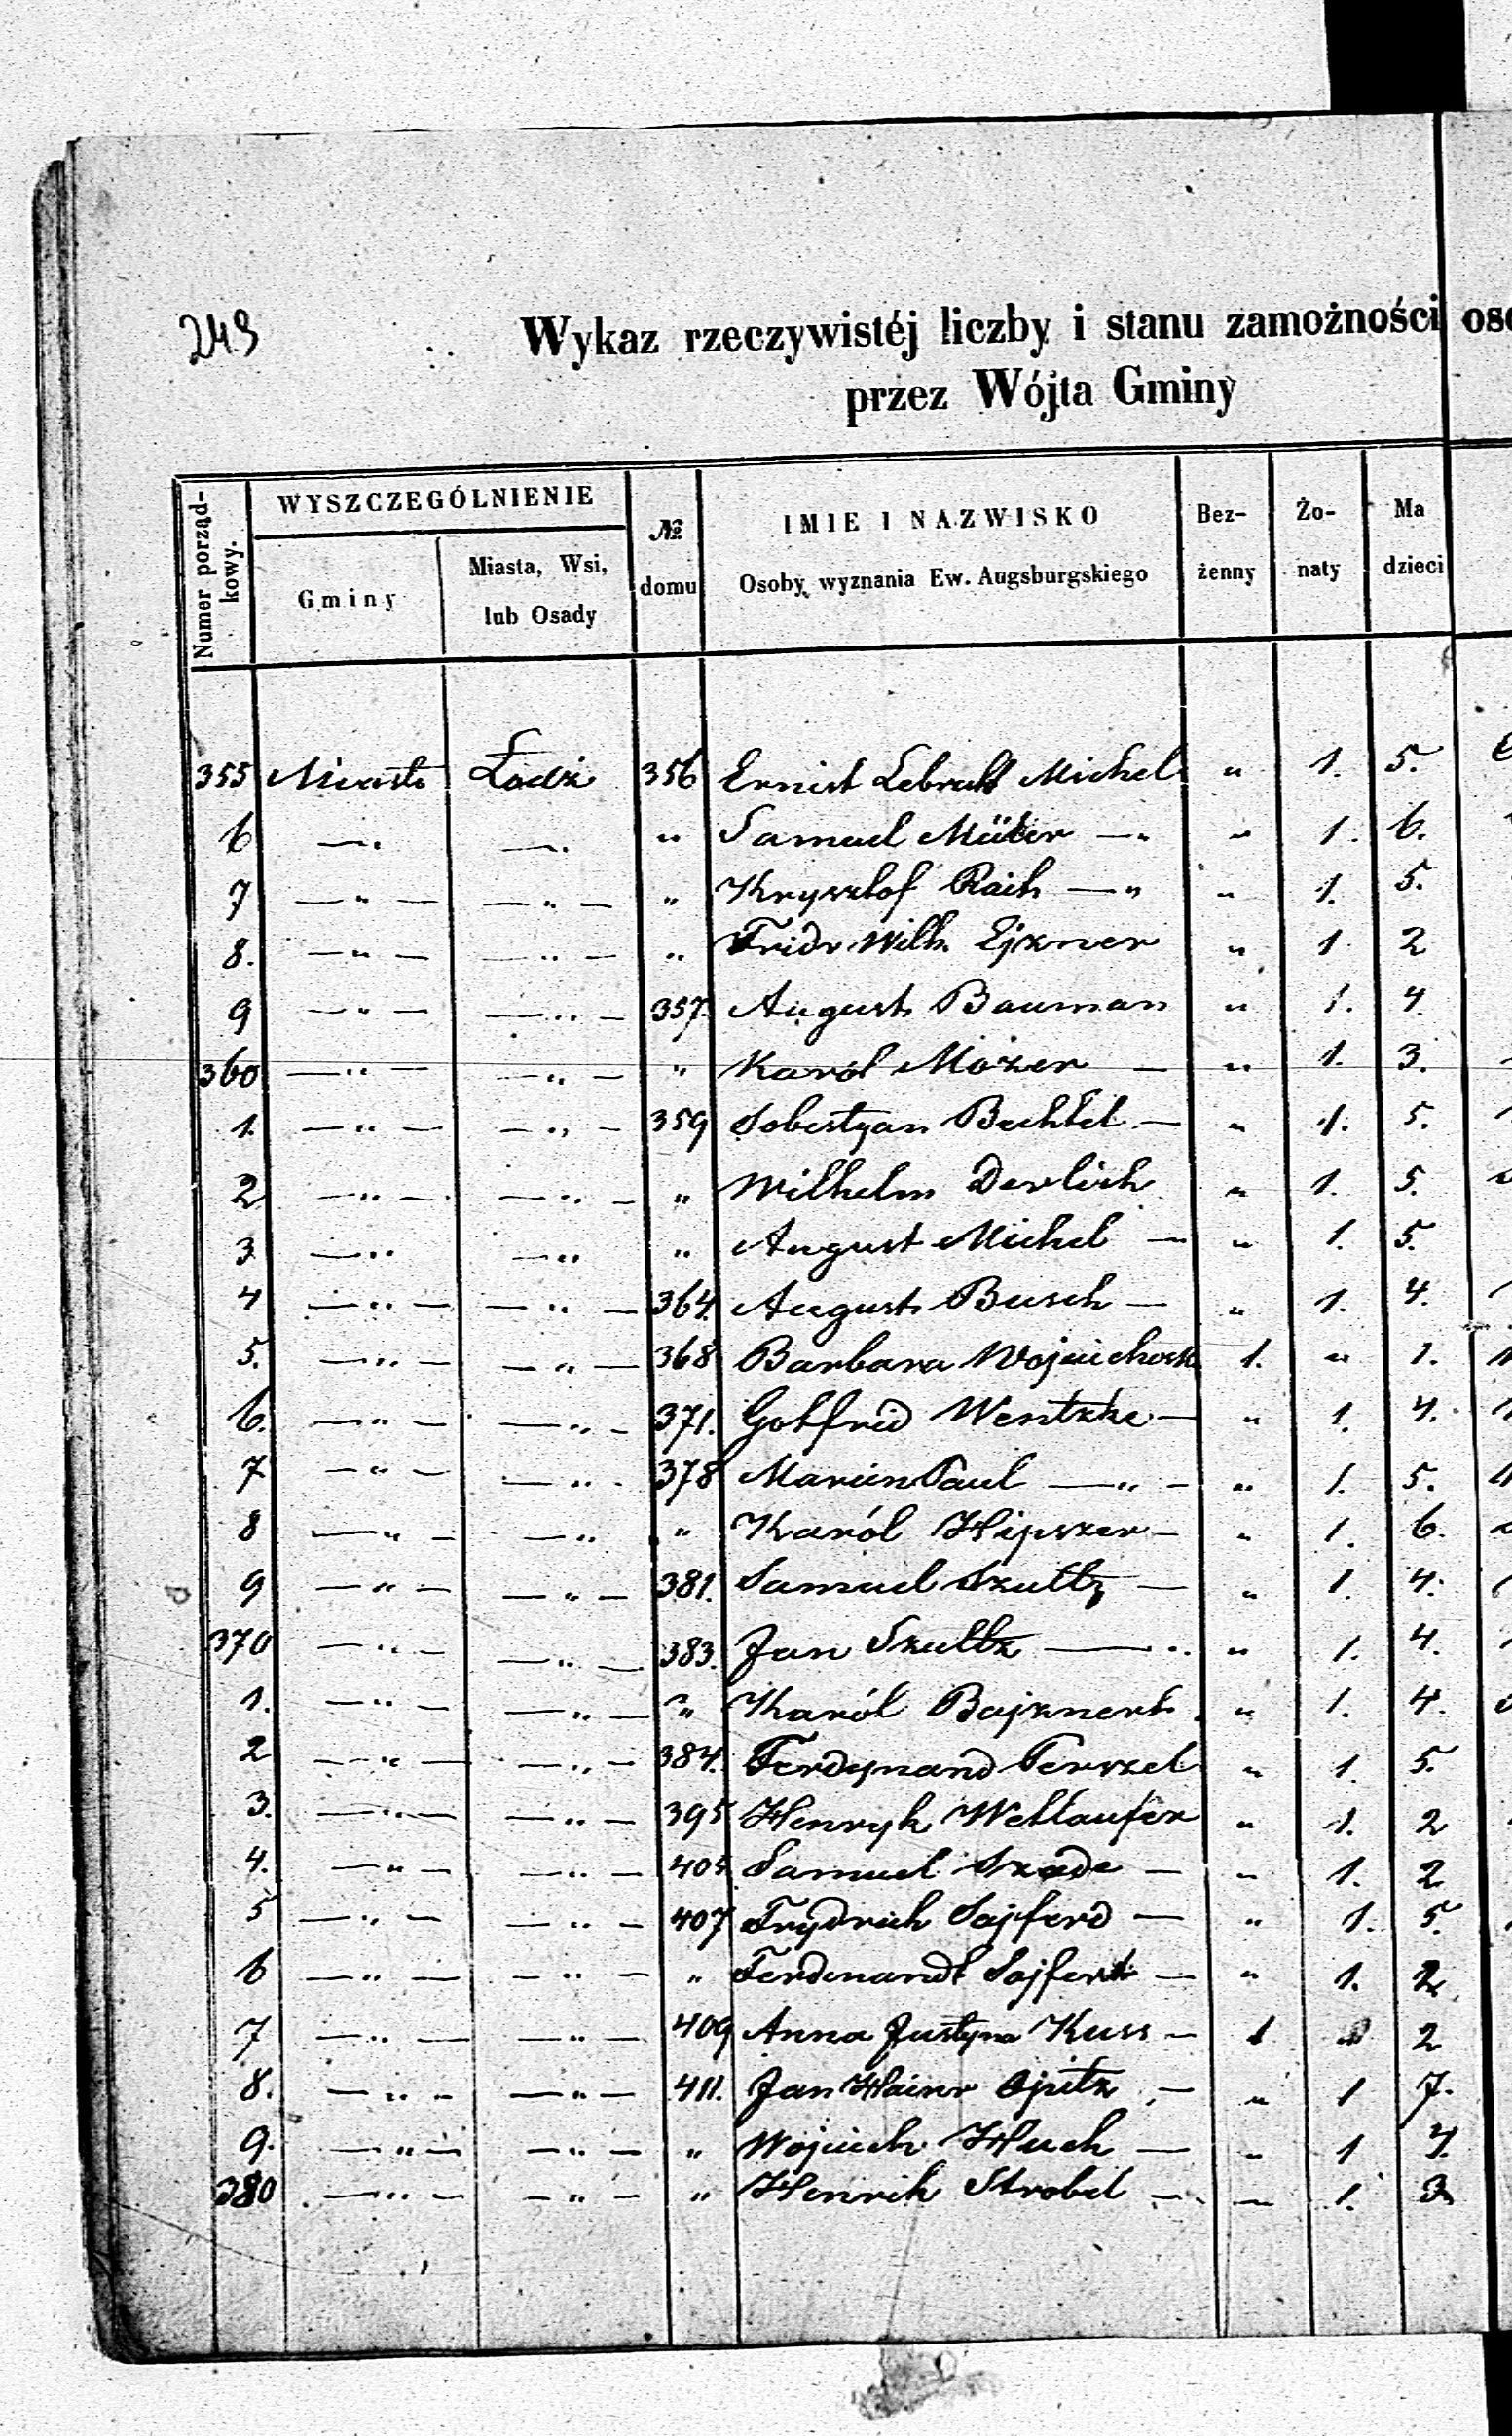 249
Wykaz rzeczywistéj liczby i stanu zamożności
przez Wójta Gminy
Numer porząd-kowy.
WYSZCZEGÓLNIENIE
Gminy
Miasta, Wsi, lub Osady
№ domu
IMIE I NAZWISKO
Osoby wyznania Ew. Augsburgskiego
Bez-żenny
Żo-naty
Ma dzieci
355 Miasto Łodzi 356 Ernist Lebrecht Michel " 1. 5.
6 —"— —"— " Samuel Müller —" " 1. 6.
7 —"— —"— " Krysztof Raich —" " 1. 5.
8. —"— —"— " Fridr Wilh. Ejzner " 1 2
9 —"— —"— 357. August Bauman " 1. 4.
360 —"— —"— " Karól Mozer — " 1. 3.
1. —"— —"— 359 Sobestyan Bechtel — " 1. 5.
2 —"— —"— " Wilhelm Derlich " 1. 5.
3 —"— —"— " August Michel — " 1. 5.
4 —"— —"— 364. August Busch — " 1. 4.
5. —"— —"— 368 Barbara 1. " 1.
6. —"— —"— 371. Gotfrid Wentzke — " 1. 4.
7 —"— —"— 378 Marcin Paul —"— " 1. 5.
8 —"— —"— " Karól Hipszer — " 1. 6.
9 —"— —"— 381. Samuel Szultz — " 1. 4.
370 —"— —"— 383. Jan Szultz — " 1. 4.
1. —"— —"— " Karól Bajznert " 1. 4.
2 —"— —"— 384. Ferdynand Perszel " 1. 5.
3. —"— —"— 395 Henryk Wetlaufer " 1. 2
4. —"— —"— Samuel Szade — " 1. 2
5 —"— —"— 407 Frydrich Sajferd — " 1. 5.
6 —"— —"— " Ferdenandt Sajfert — " 1. 2
7 —"— —"— 409 Anna Justyna Kuss — 1 " 2
8. —"— —"— 411. Jan Hainr Opitz — " 1 7.
9. —"— —"— " Wojciech Huch — " 1
380 —"— —"— " Henrik Strobel — — 1. 3